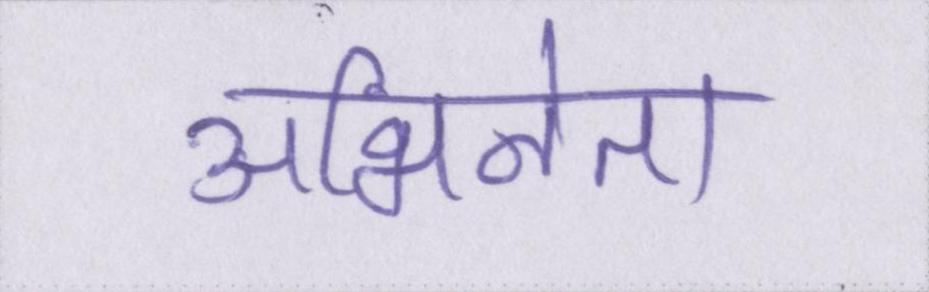 अभिनेता